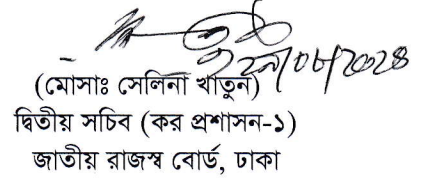 (মোসাঃ সেলিনা খাতুন)
দ্বিতীয় সচিব (কর প্রশাসন-১)
জাতীয় রাজস্ব বোর্ড, ঢাকা